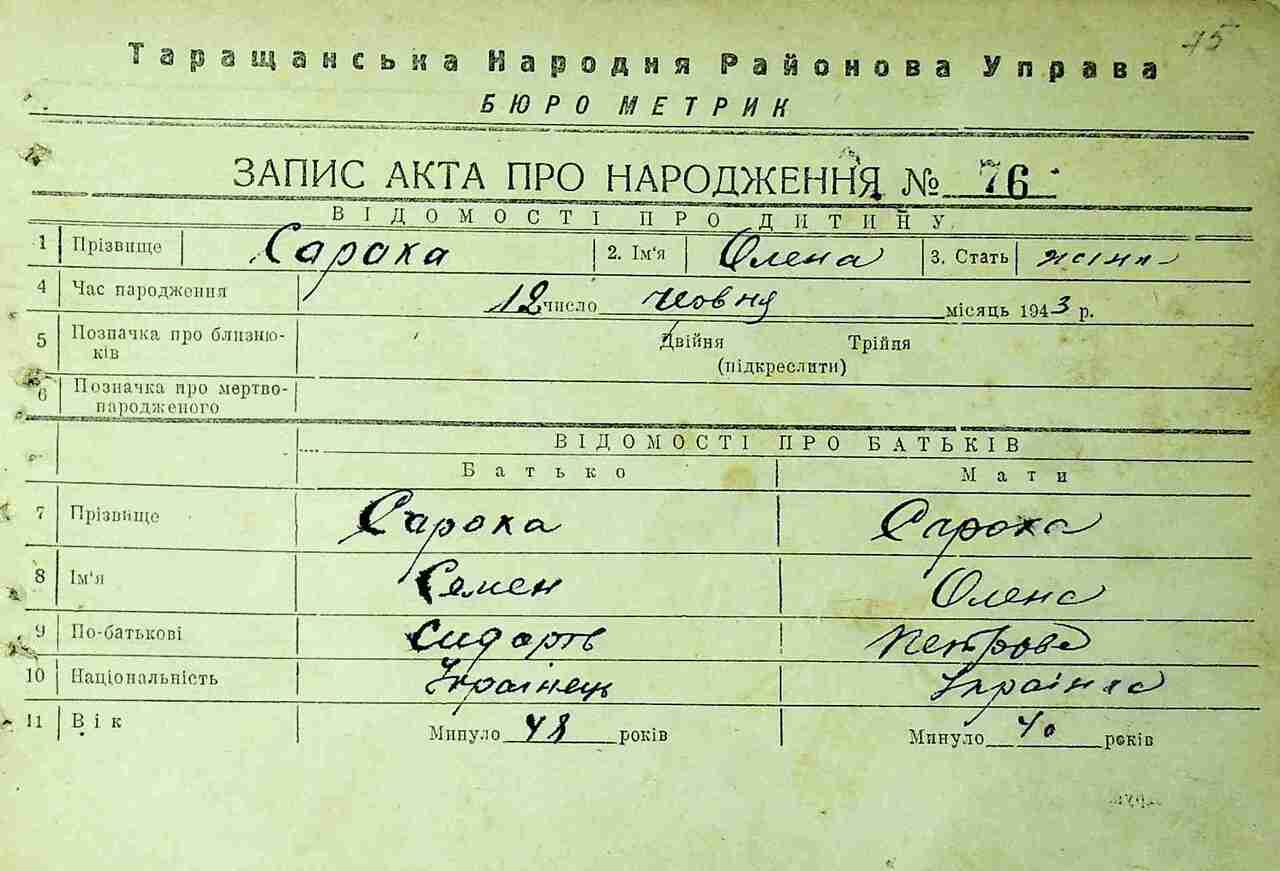 75
Таращанська Народня Районова Управа
БЮРО МЕТРИК
ЗАПИС АКТА ПРО НАРОДЖЕННЯ № 76
ВІДОМОСТІ ПРО ДИТИНУ
1 Прізвище Сароха 2. Ім'я Олена 3. Стать
4 Час народження 12 число місяць 1943 р.
5 Позначка про близню- Двійня Трійня
ків (підкреслити)
6 Позначка про мертво-
народженого
ВІДОМОСТІ ПРО БАТЬКІВ
Батько Мати
7 Прізвище Сароха Сароха
8 Ім'я Семен Олена
9 По-батькові Петрова
10 Національність Українець Українка
11 Вік Минуло 48 років Минуло 40 років